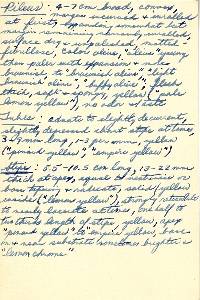 Pileus: 4-7 cm broad, convex,
margin incurved & inrolled
at first, appendiculate, somewhat
margin remaining narrowly inrolled,
surface dry, unpolished, matted
fibrillose, color olive,
then paler with expansion &
brownish to brownish olive "light
brownish olive", "buffy olive"; flesh
thick, soft & spongy, yellow ("pale
lemon yellow"), no odor & taste
Tubes: adnate to slightly decurrent,
slightly depressed about stipe at times,
3-9 mm long, 1-3 per mm, yellow
("pinard yellow", "empire yellow")
Stipe: 5.5-10.5 cm long, 13-22 mm
thick at apex, equal
base tapering & radicate, solid, yellow
inside ("lemon yellow"), strongly reticulate
to nearly lacunate at times, one half to
two thirds length of stipe yellow, apex
"pinard yellow" to "empire yellow", base
near substrate sometimes brighter is
"lemon chrome"